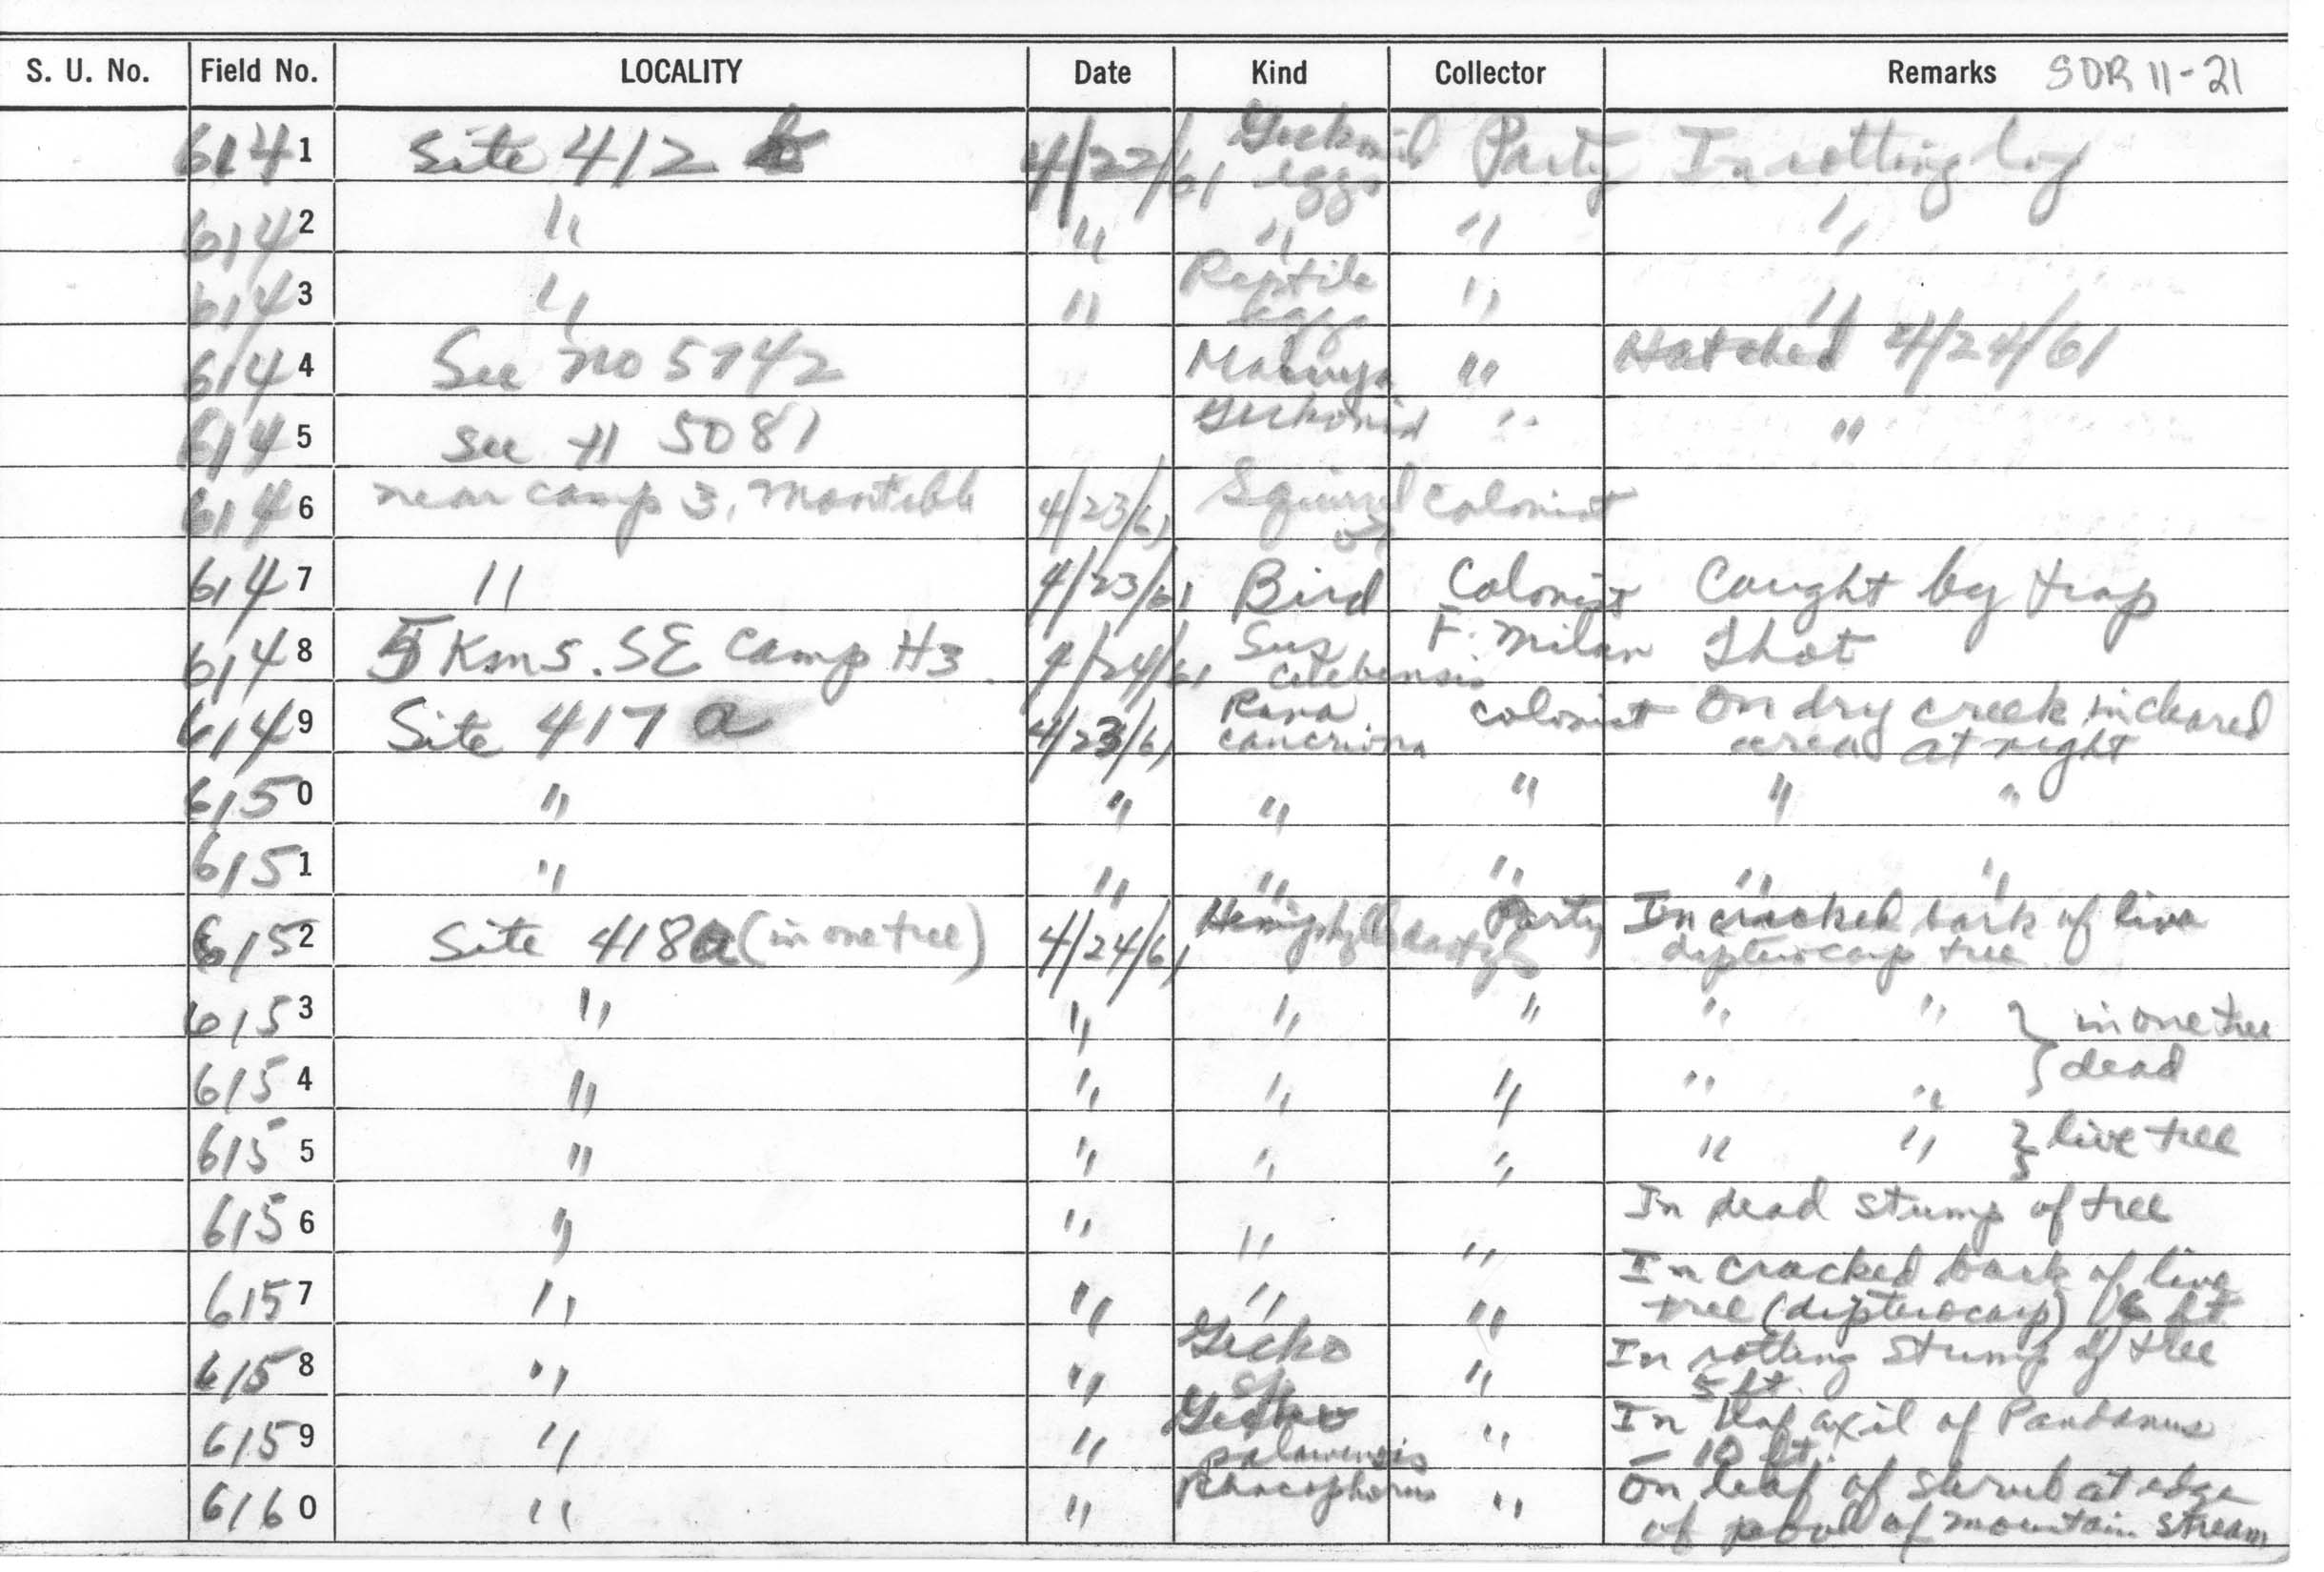 S. U. No. Field No. LOCALITY Date Kind Collector Remarks SDR 11-21
6141 Site 412 b 4/22/61 Geckonid eggs Party In rotting log
6142 " " " " "
6143 " " Reptile eggs " "
6144 See no 5742 Mabuya " Hatched 4/24/61
6145 See # 5081 Geckonid " "
6146 near camp 3, Montible 4/23/61 Squirrel ♂ Colonist
6147 " 4/23/61 Bird Colonist Caught by trap
6148 5 Kms. SE Camp #3 4/24/61 Sus celebensis F. Milan Shot
6149 Site 417 a 4/23/61 Rana cancrivora colonist On dry creek in cleared area at night
6150 " " " " " "
6151 " " " " " "
6152 Site 418a (in one tree) 4/24/61 Hemiphyllodactylus Party In cracked bark of live dipterocarp tree
6153 " " " " " " } in one tree
6154 " " " " " " } dead
6155 " " " " " " } live tree
6156 " " " " In dead stump of tree
6157 " " " " In cracked bark of live tree (dipterocarp) 6 ft
6158 " " Gecko sp. " In rotting stump of tree 5 ft.
6159 " " Gecko palawensis " In leaf axil of Pandanus – 10 ft.
6160 " " Rhacophorus " On leaf of shrub at edge of pool of mountain stream